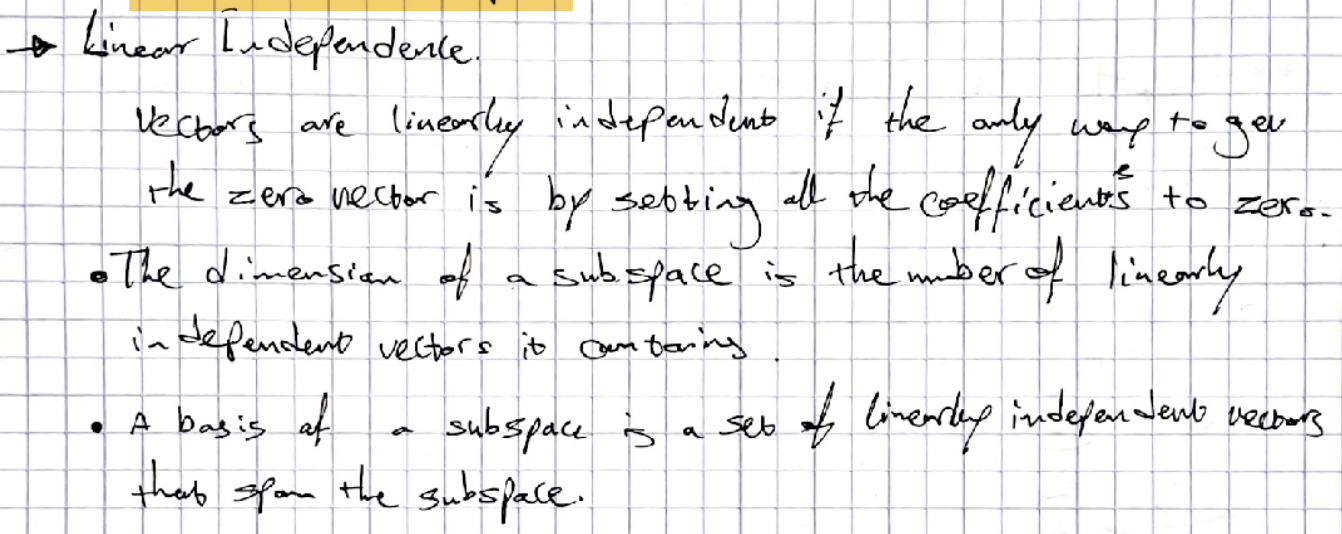 → Linear Independence.
Vectors are linearly independent if the only way to get
the zero vector is by setting all the coefficients to zero.
• The dimension of a subspace is the number of linearly
independent vectors it contains.
• A basis of a subspace is a set of linearly independent vectors
that span the subspace.